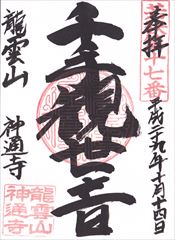 奉拝
平成二十九年十月十四日
十七番
千手観世音
龍雲山
神通寺
龍雲山
神通寺